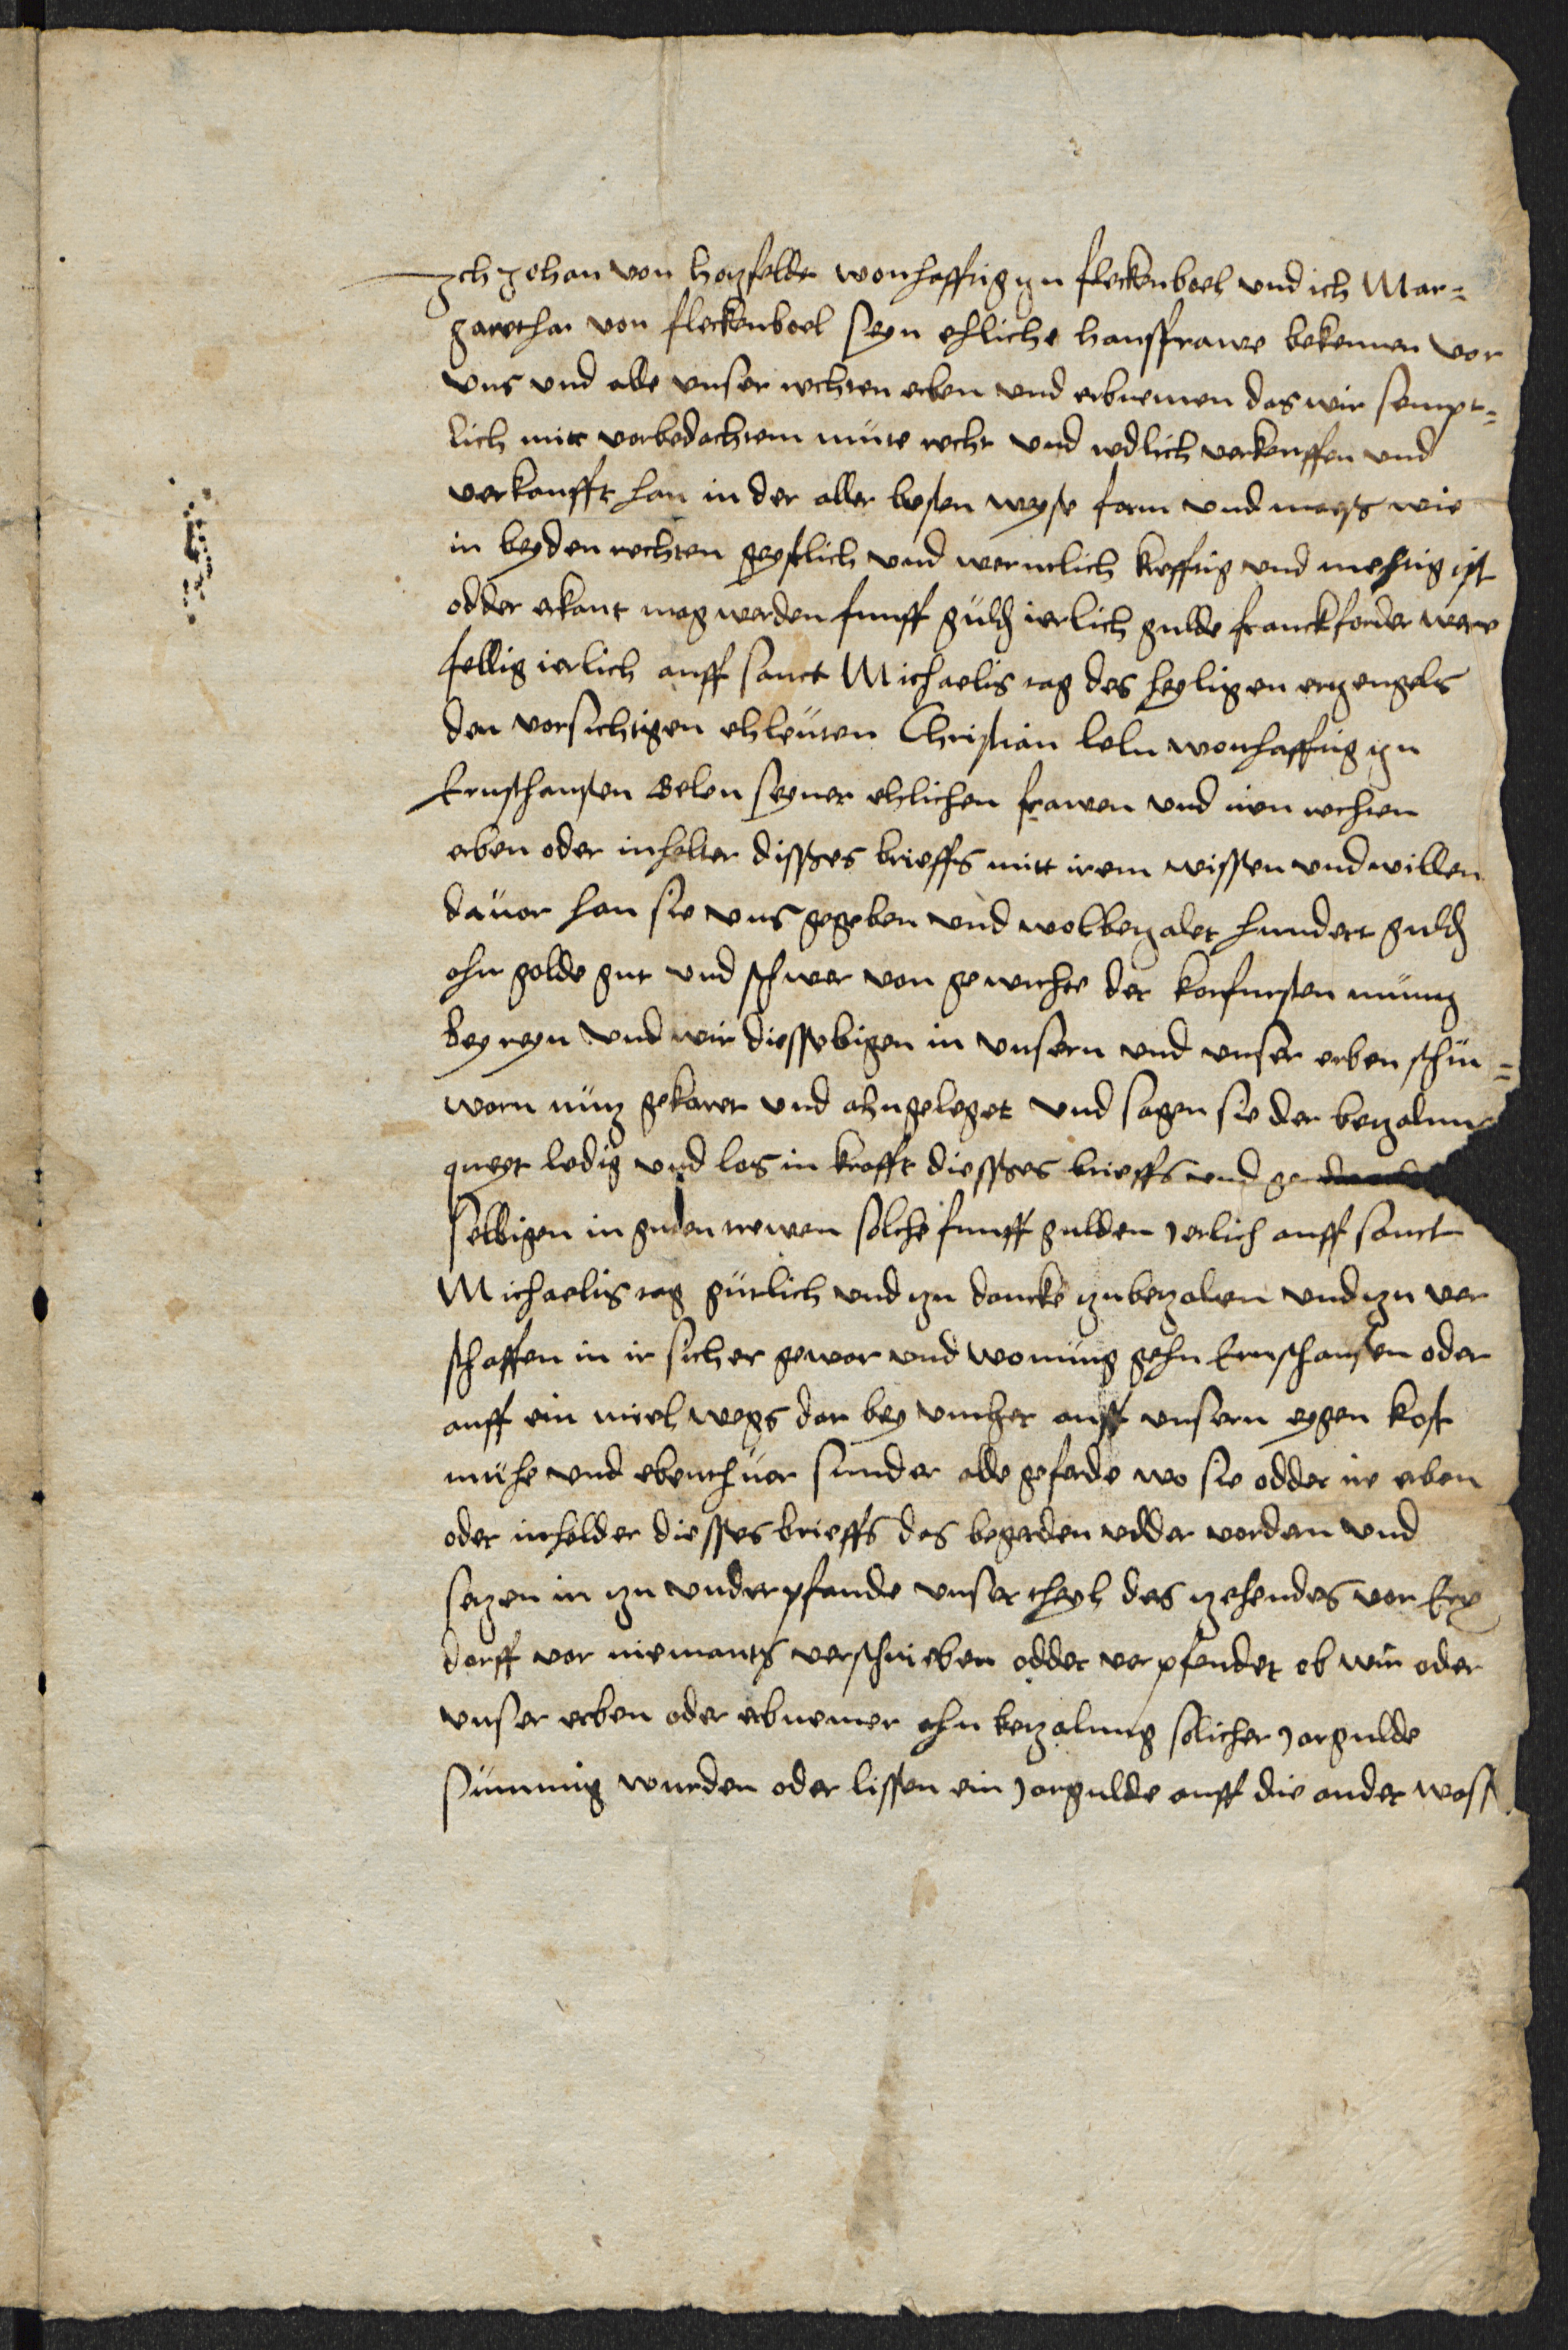 Ich Johan von hatzfeldt wonhafftig zu fleckenboel und ich Mar=
garethar von fleckenboel seyn ehliche hausfrawe bekennen vor
uns und alle unser rechten erben und erbnemen das wir sempt=
lich mitt vorbedachtem müte recht und redlich verkeuffen und
verkaufft han in der aller besten weyse form und maeß wie
in beyden rechten geystlich und werntlich krefftig und mechtig ist
odder erkant mag werden funff güld jerlich gulde franckforder were
fellig ierlich auff sanct Michaelis tag des heyligen ertzengels
den vorsichtigen ehleuten Christian leln wonhafftig zu
Ernsthausen Gelen seyner ehlichen frawen und iren rechten
erben oder inhalter disses brieffs mitt irem wissen und willen
dauor han sie uns gegeben und wolbetzalet hundert guld
ahn golde gut und schwer von gewichte der korfursten müntz
bey reyn und wir diesselbigen in unsern und unser erben schin=
warn nütz gekaret und ahngeleget und sagen sie der betzalun
queyt ledig und los in krafft diesses brieffs und ge
selbigen in guden trewen solche funff gulden jerlich auff sanct
Michaelis tag gütlich und zu dancke zubetzalen und zu ver
schaffen in ir sicher gewar und wonung gehn Ernsthausen oder
auff ein miel wegs dar bey umher auff unsern eygen kost
mühe und ebenthüer sunder alle geferde wo sie odder ire erben
oder inholder diesses brieffs das begerden odder vordern und
setzen in zu underpfande unser theyl des zehendes vor Erx
dorff vor niemants verschrieben odder verpfendet ob wir oder
unser erben oder erbnemer ahn betzalung solicher jargulde
sümmig wurden oder lissen ein jargulde auff die ander